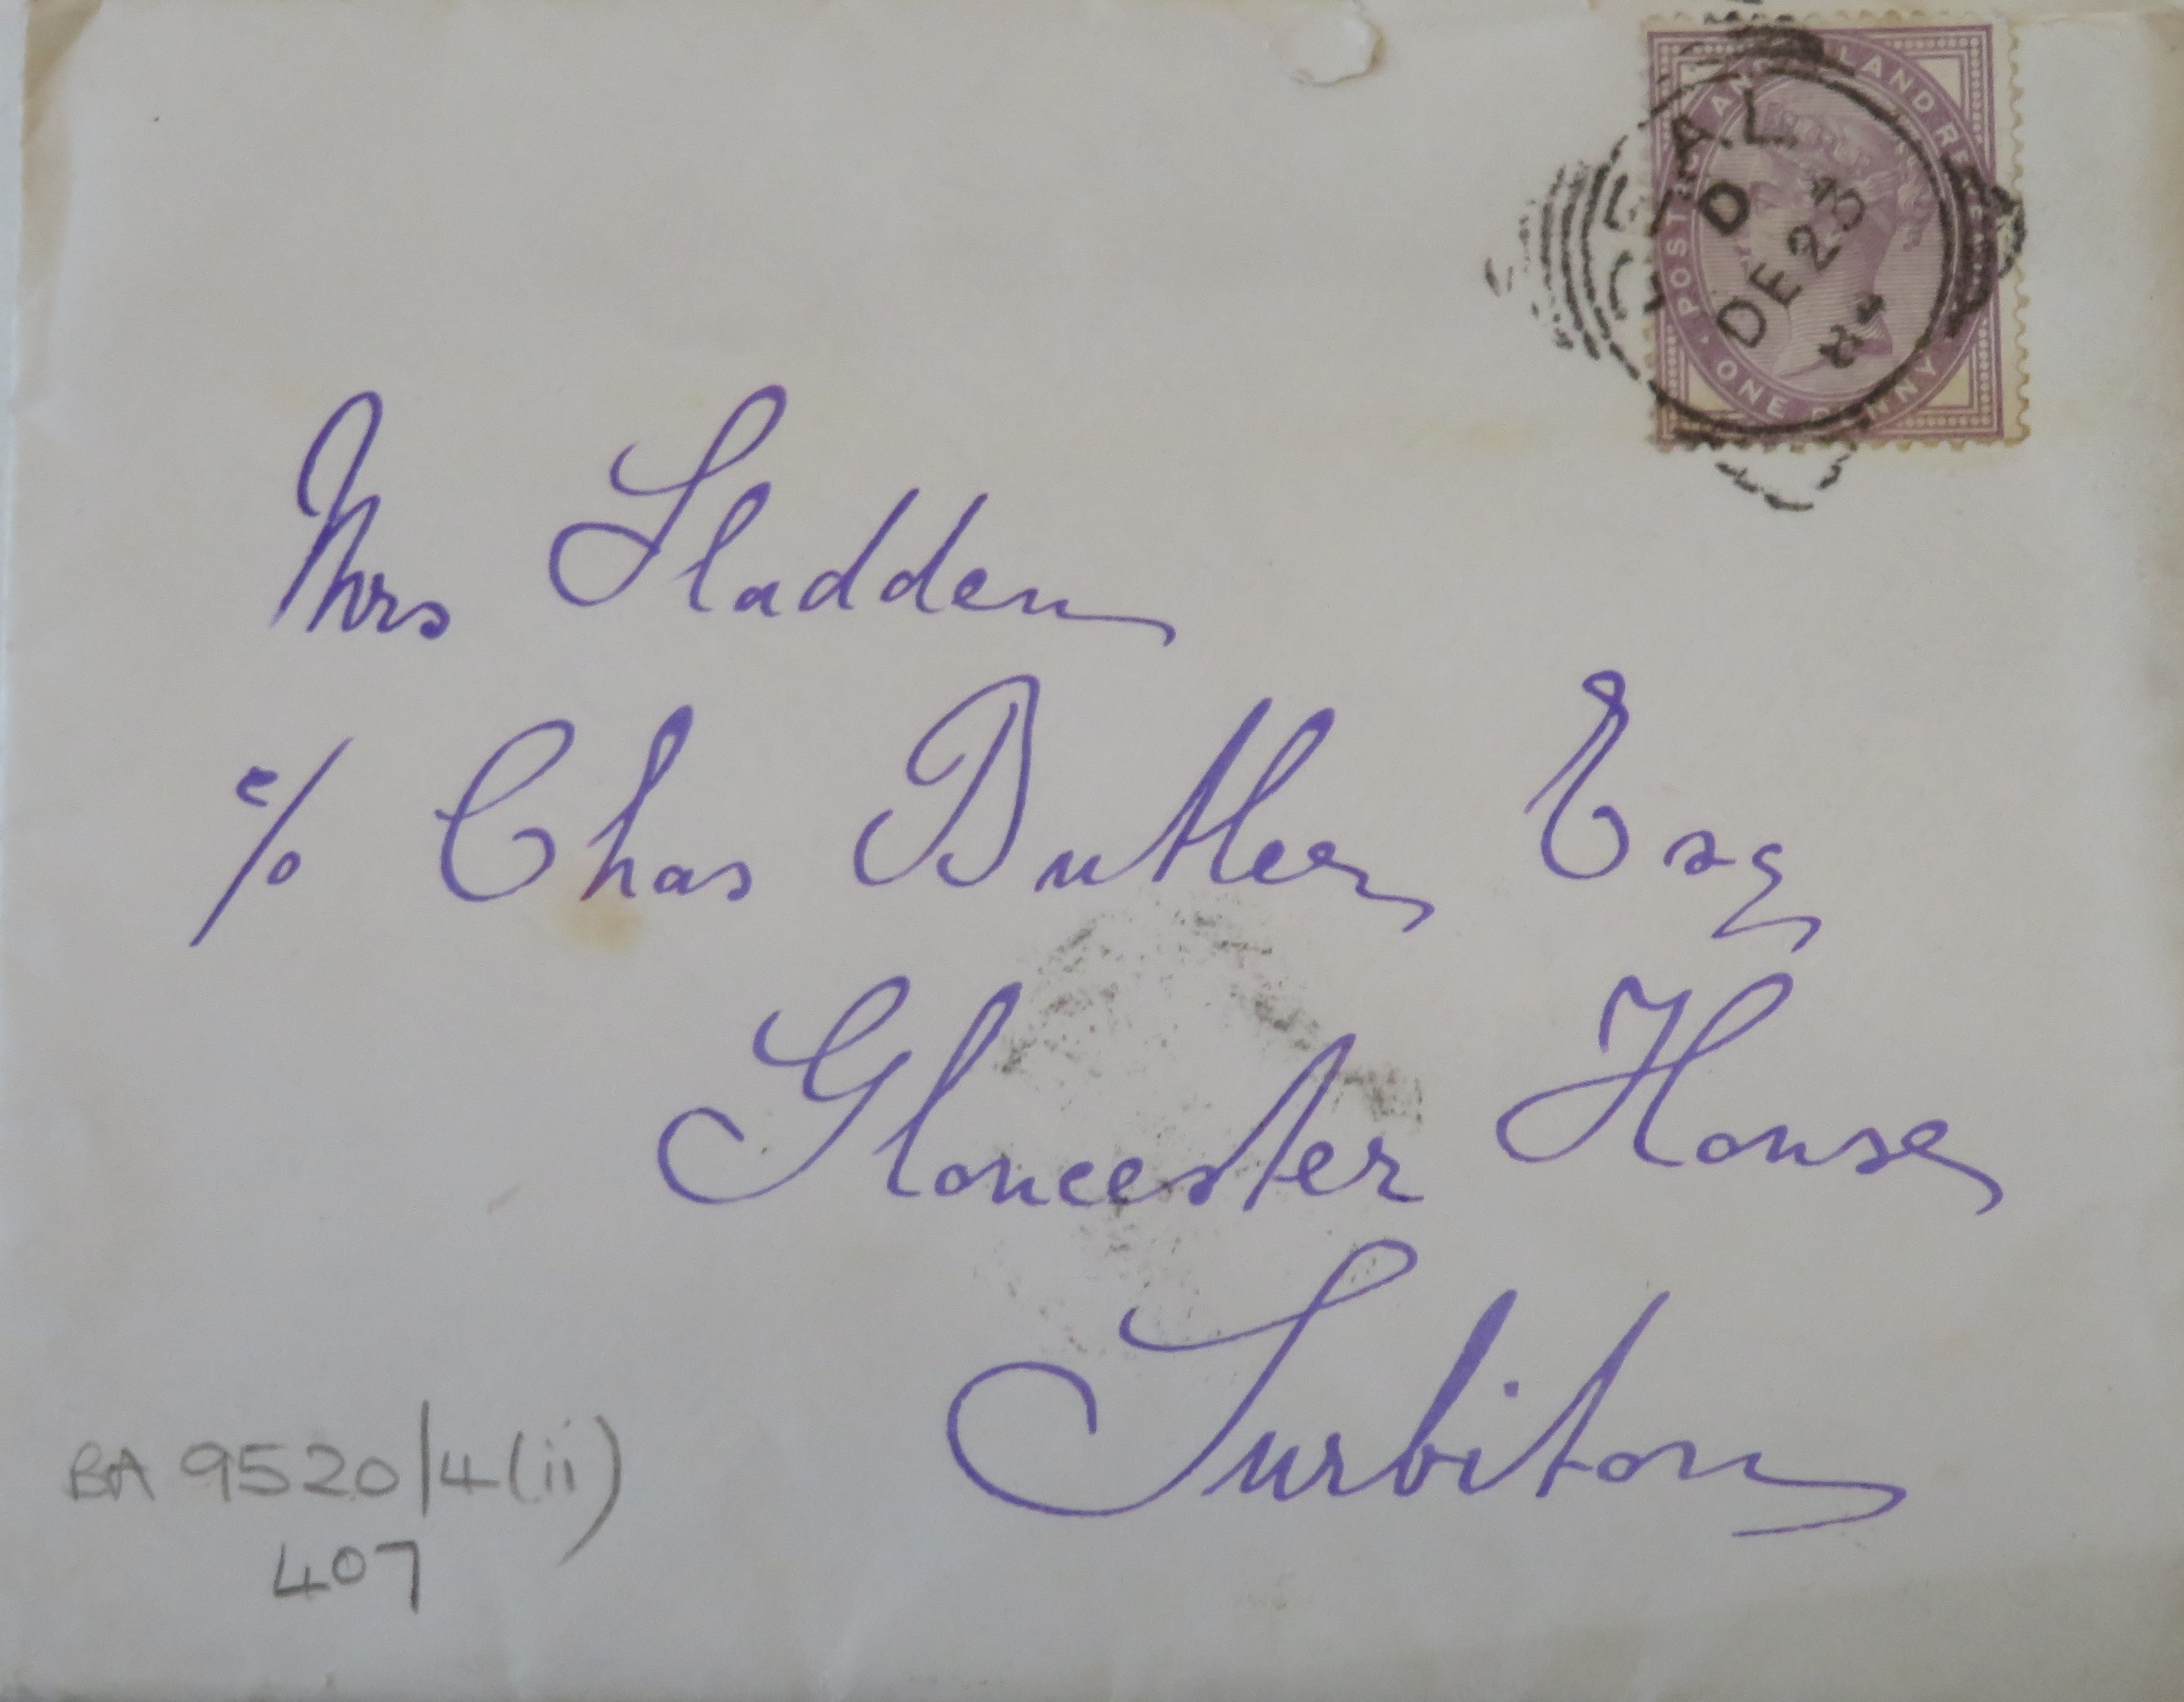 POSTAGE AND INLAND REVENUE
ONE PENNY
D
DE 23
Mrs Sladden
c/o Chas Butler Esq
Gloucester House
Surbiton
BA 9520/4(ii)
407